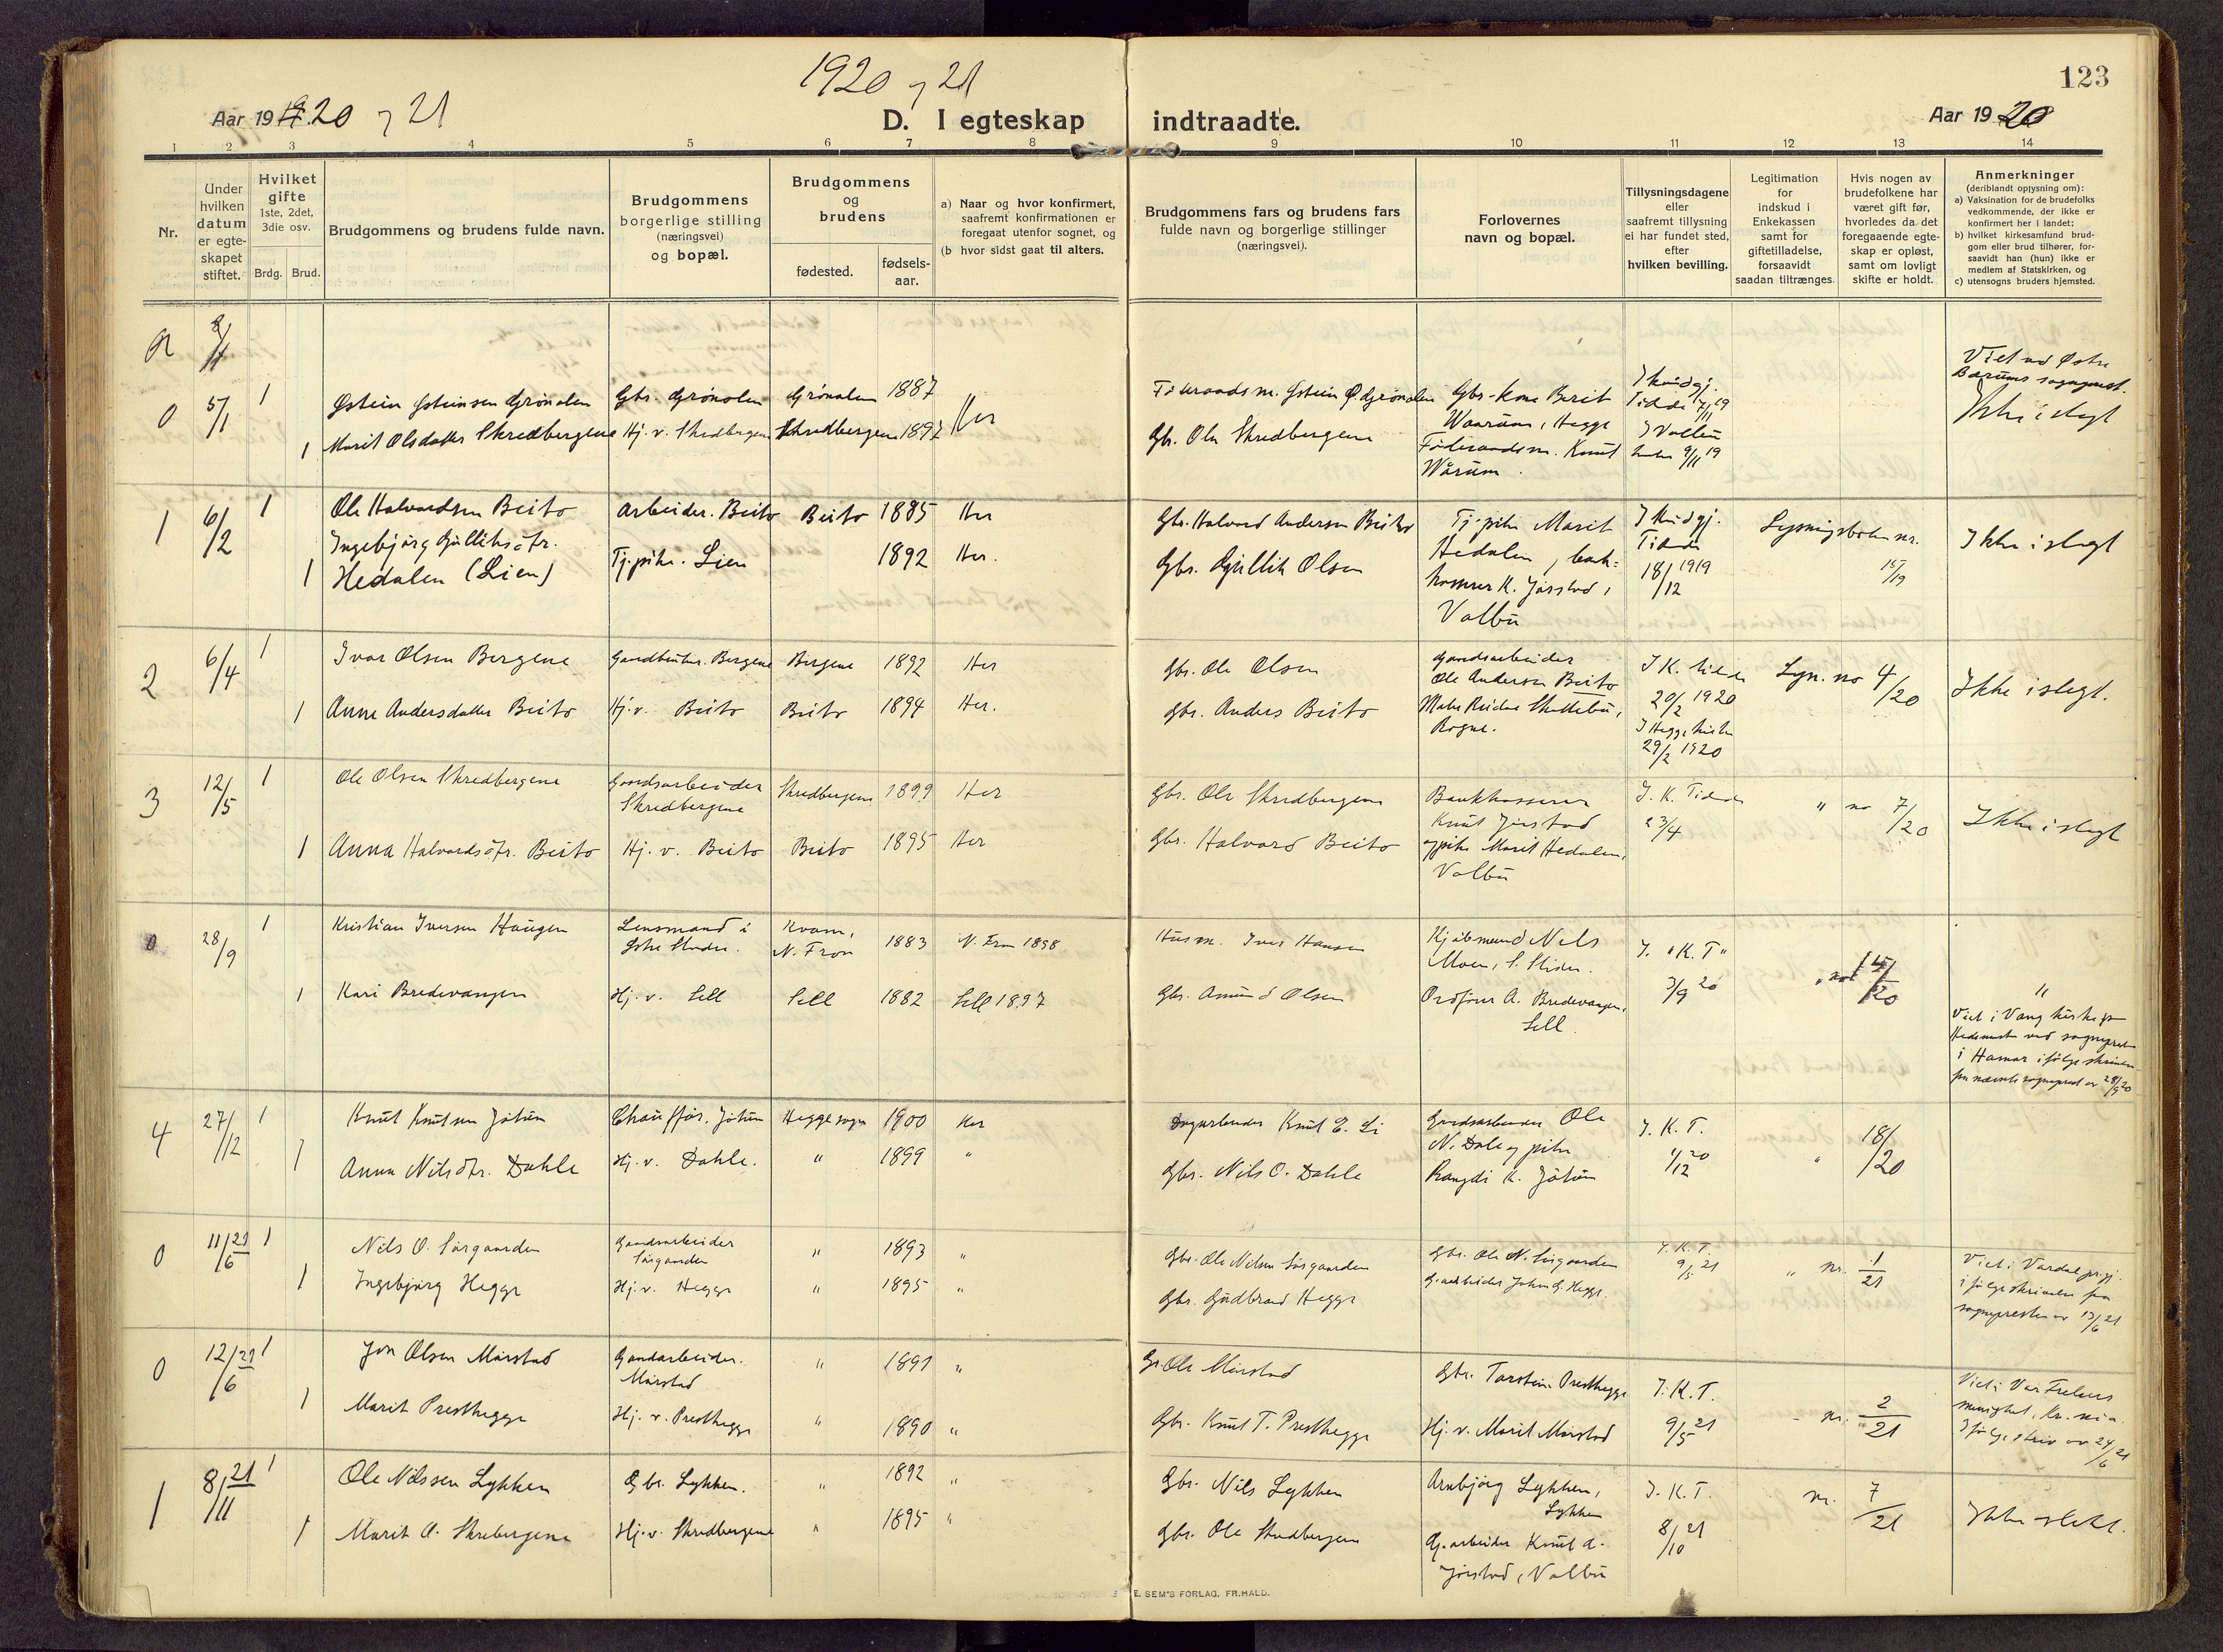 1920 og 21
123
Aar 1920 og 21
D. I egteskap indtraadte.
Aar 1920
1 2 3 4 5 6 7 8 9 10 11 12 13 14
Nr.
Under hvilken datum er egteskapet stiftet.
Hvilket gifte 1ste, 2det, 3die osv.
Brdg. Brud.
Brudgommens og brudens fulde navn.
Brudgommens borgerlige stilling (næringsvei) og bopæl.
Brudgommens og brudens
fødested.
fødselsaar.
a) Naar og hvor konfirmert, saafremt konfirmationen er foregaat utenfor sognet, og
(b hvor sidst gaat til alters.
Brudgommens fars og brudens fars fulde navn og borgerlige stillinger (næringsvei).
Forlovernes navn og bopæl.
Tillysningsdagene eller saafremt tillysning ei har fundet sted, efter hvilken bevilling.
Legitimation for indskud i Enkekassen samt for giftetilladelse, forsaavidt saadan tiltrænges.
Hvis nogen av brudefolkene har været gift før, hvorledes da det foregaaende egteskap er opløst, samt om lovligt skifte er holdt.
Anmerkninger
(deriblandt oplysning om):
a) Vaksination for de brudefolks vedkommende, der ikke er konfirmert her i landet;
b) hvilket kirkesamfund brudgom eller brud tilhører, forsaavidt han (hun) ikke er medlem af Statskirken, og
c) utensogns bruders hjemsted.
0 5/1 1 Østein Østeinsen Grønolen Gbr. Grønolen Grønolen 1887 Her
1 Marit Olsdatter Skredbergene Hj. v. Skredbergene Skredbergene 1897
Føderaadsm. Østein Ø. Grønolen
Gbr. Ole Skredbergene
Gbr.-kone Berit Waarum, Hegge
Føderaadsm. Knut Wårum.
I kundgj. Tidende 7/11 19
9/11 19
Viet ved Østre Bærums sogneprest.
Ikke i slegt
1 6/2 1 Ole Halvordsen Beito Arbeider. Beito Beito 1885 Her
1 Ingebjørg Gulliksdtr. Hedalen (Lien) Tj. pike. Lien 1892 Her.
Gbr. Halvord Andersen Beito
Gbr. Gullik Olsen
Tj. pike Marit Hedalen, bankkasserer K. Jørstad, Volbu
I Kundgj. Tidende 18/12 1919
Lysningsboken nr. 15/19
Ikke i slegt
2 6/4 1 Ivar Olsen Bergene Gaardbruker. Bergene Bergene 1892 Her
1 Anne Andersdatter Beito Hj. v. Beito Beito 1894 Her.
Gbr. Ole Olsen
Gbr. Anders Beito
Gaardsarbeider Ole Andersen Beito
Rogne.
I K. tidende 20/2 1920
I Hegge kirke 29/2 1920
Lysn. no 4/20
Ikke i slegt.
3 12/5 1 Ole Olsen Skredbergene Gaardsarbeider Skredbergene Skredbergene 1899 Her
1 Anna Halvordsdtr. Beito Hj. v. Beito Beito 1895 Her
Gbr. Ole Skredbergene
Gbr. Halvord Beito
Bankkasserer Knut Jørstad og pike Marit Hedalen, Volbu
I. K. Tidende 23/4
" no 7/20
Ikke i slegt
0 28/9 1 Kristian Iversen Haugen Lensmand i Østre Slidre. Kvam, N. Fron 1883 N. Fron 1898
1 Kari Bredevangen Hj. v. Sell Sell 1882 Sell 1897
Husm. Iver Hansen
Gbr. Amund Olsen
Kjøbmand Nels Moen, S. Slidre.
Ordfører A. Bredevangen, Sell.
I. "K. T" 3/9 20
" no 15/20
"
Viet i Vang kirke paa Hedemark ved sognepresten i Hamar ifølge skrivelse fra nævnte sogneprest av 28/9 20
4 27/12 1 Knut Knutsen Jøtun Chauffør. Jøtun Hegge sogn 1900 Her
1 Anna Nilsdtr. Dahle Hj. v. Dahle. " 1899 "
Dagarbeider Knut E. Li
Gbr. Nils O. Dahle
Gaardsarbeider Ole N. Dale og pike Rangdi K. Jøtun
I. K. T. 4/12 20
" 18/20
0 11/6 21 1 Nils O. Sørgaarden Gaardsarbeider Sørgaarden " 1893 "
1 Ingebjørg Hegge Hj. v. Hegge " 1895 "
Gbr. Ole Nilsen Sørgaarden
Gbr. Gudbrand Hegge
Gbr. Ole N. Sørgaarden
G. arbeider John G. Hegge.
I. K. T. 9/5 21
" nr. 1/21
Viet i Vardal prgj. ifølge skrivelse fra sognepresten av 13/6 21
0 12/6 21 1 Jon Olsen Mørstad Gaardarbeider. Mørstad " 1891 "
1 Marit Presthegge Hj. v. Presthegge " 1890 "
Gbr. Ole Mørstad
Gbr. Knut T. Presthegge
Gbr. Torstein Presthegge
Hj. v. Marit Mørstad
I. K. T. 9/5 21
" nr. 2/21
Viet i Vor Frelsers menighet, Kr.nia. Ifølge skriv av 24/6 21
1 8/11 21 1 Ole Nilssen Lykken Gbr. Lykken. " 1892 "
1 Marit O. Skrebergene Hj. v. Skredbergene " 1895 "
Gbr. Nils Lykken
Gbr. Ole Skredbergene
Arnbjørg Lykken, Lykken
G. arbeider Knut A. Jørstad, Volbu
I. K. T. 8/10 21
nr. 7/21
Ikke slekt.
E. SEM'S FORLAG, FR.HALD.